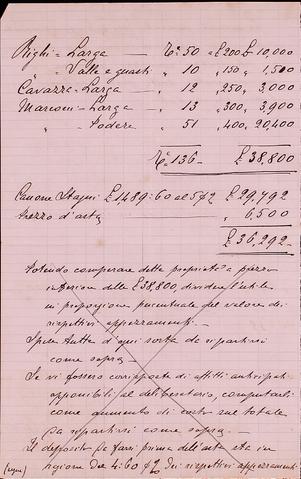 Righi - Larga — Tr.e 50 „ £ 200 £ 10,000
„ - Valle e guasti „ 10 „ 150 „ 1,500
Cavazza - Larga — „ 12 „ 250, „ 3,000
Marconi - Larga — „ 13 „ 300, „ 3,900
„ - Podere „ 51 „ 400, 20,400
Tr.e 136 — £ 38,800
Canone Stagni £ 1489:60 al 5 % £ 29,792
prezzo d'asta — „ 6,500
£ 36,292 —
Potendo comperare dette proprietà a prezzo
inferiore delle £ 38,800, dividere l'utile
in proporzione percentuale del valore dei
rispettivi appezzamenti. —
Spese tutte d'ogni sorta da ripartirsi
come sopra —
Se vi fossero corrisposte di affitti anticipati
opponibili al deliberatario, computarli
come aumento di costo sul totale
da ripartirsi come sopra. —
Il deposito da farsi prima dell'asta sta in
ragione del 4:60 % dei rispettivi appezzamenti
(segue)